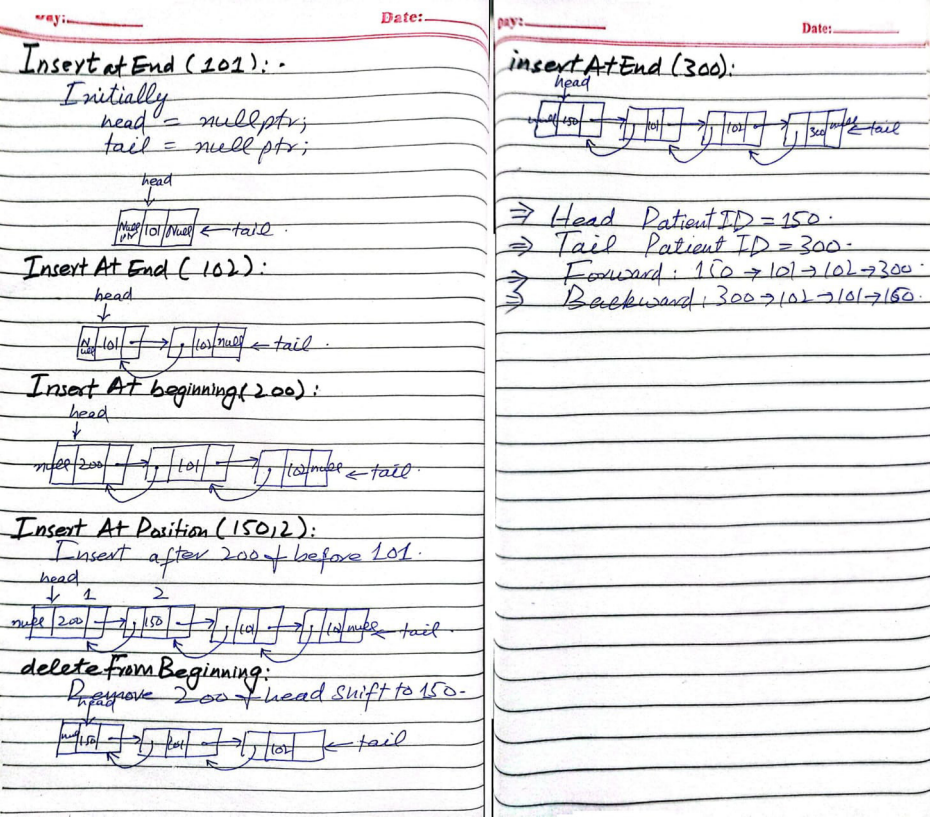 Day:
Date:
Insert at End (101):
Initially
head = nullptr;
tail = nullptr;
head
Null ptr 101 Null tail.
Insert At End (102):
head
Null 101 102 null tail.
Insert At beginning(200):
head
null 200 101 102 null tail.
Insert At Position (150,2):
Insert after 200 & before 101.
head 1 2
null 200 150 101 102 null tail.
delete from Beginning:
Remove 200 & head shift to 150.
head
null 150 101 102 tail
Day:
Date:
insert At End (300):
head
null 150 101 102 300 null tail
⇒ Head Patient ID = 150.
⇒ Tail Patient ID = 300.
⇒ Forward: 150 → 101 → 102 → 300.
⇒ Backward: 300 → 102 → 101 → 150.